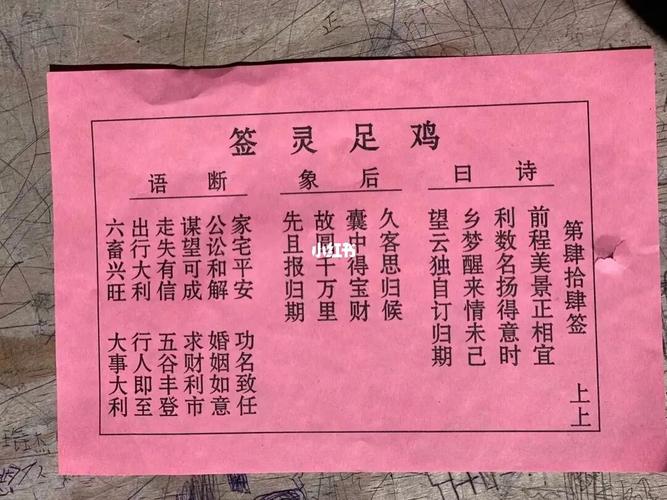 鸡足灵签
第肆拾肆签 上上
诗曰
前程美景正相宜
利数名扬得意时
乡梦醒来情未已
望云独自订归期
后象
久客思归候
囊中得宝财
故园千万里
先且报归期
断语
家宅平安 功名致任
公讼和解 婚姻如意
谋望可成 求财利市
走失有信 五谷丰登
出行大利 行人即至
六畜兴旺 大事大利
小红书